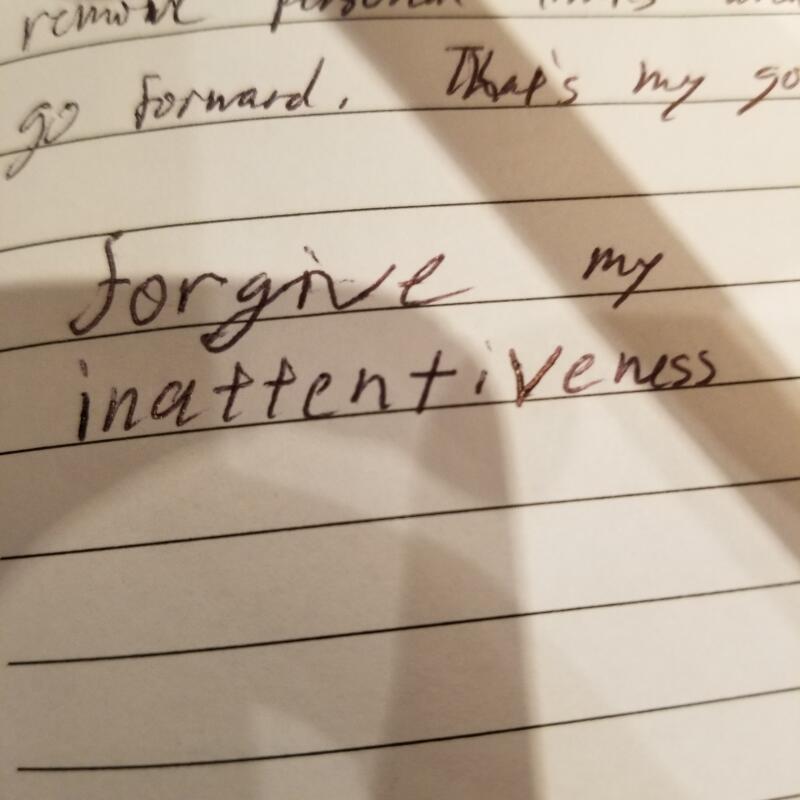 remove personal
go forward. That's my go
forgive my
inattentiveness